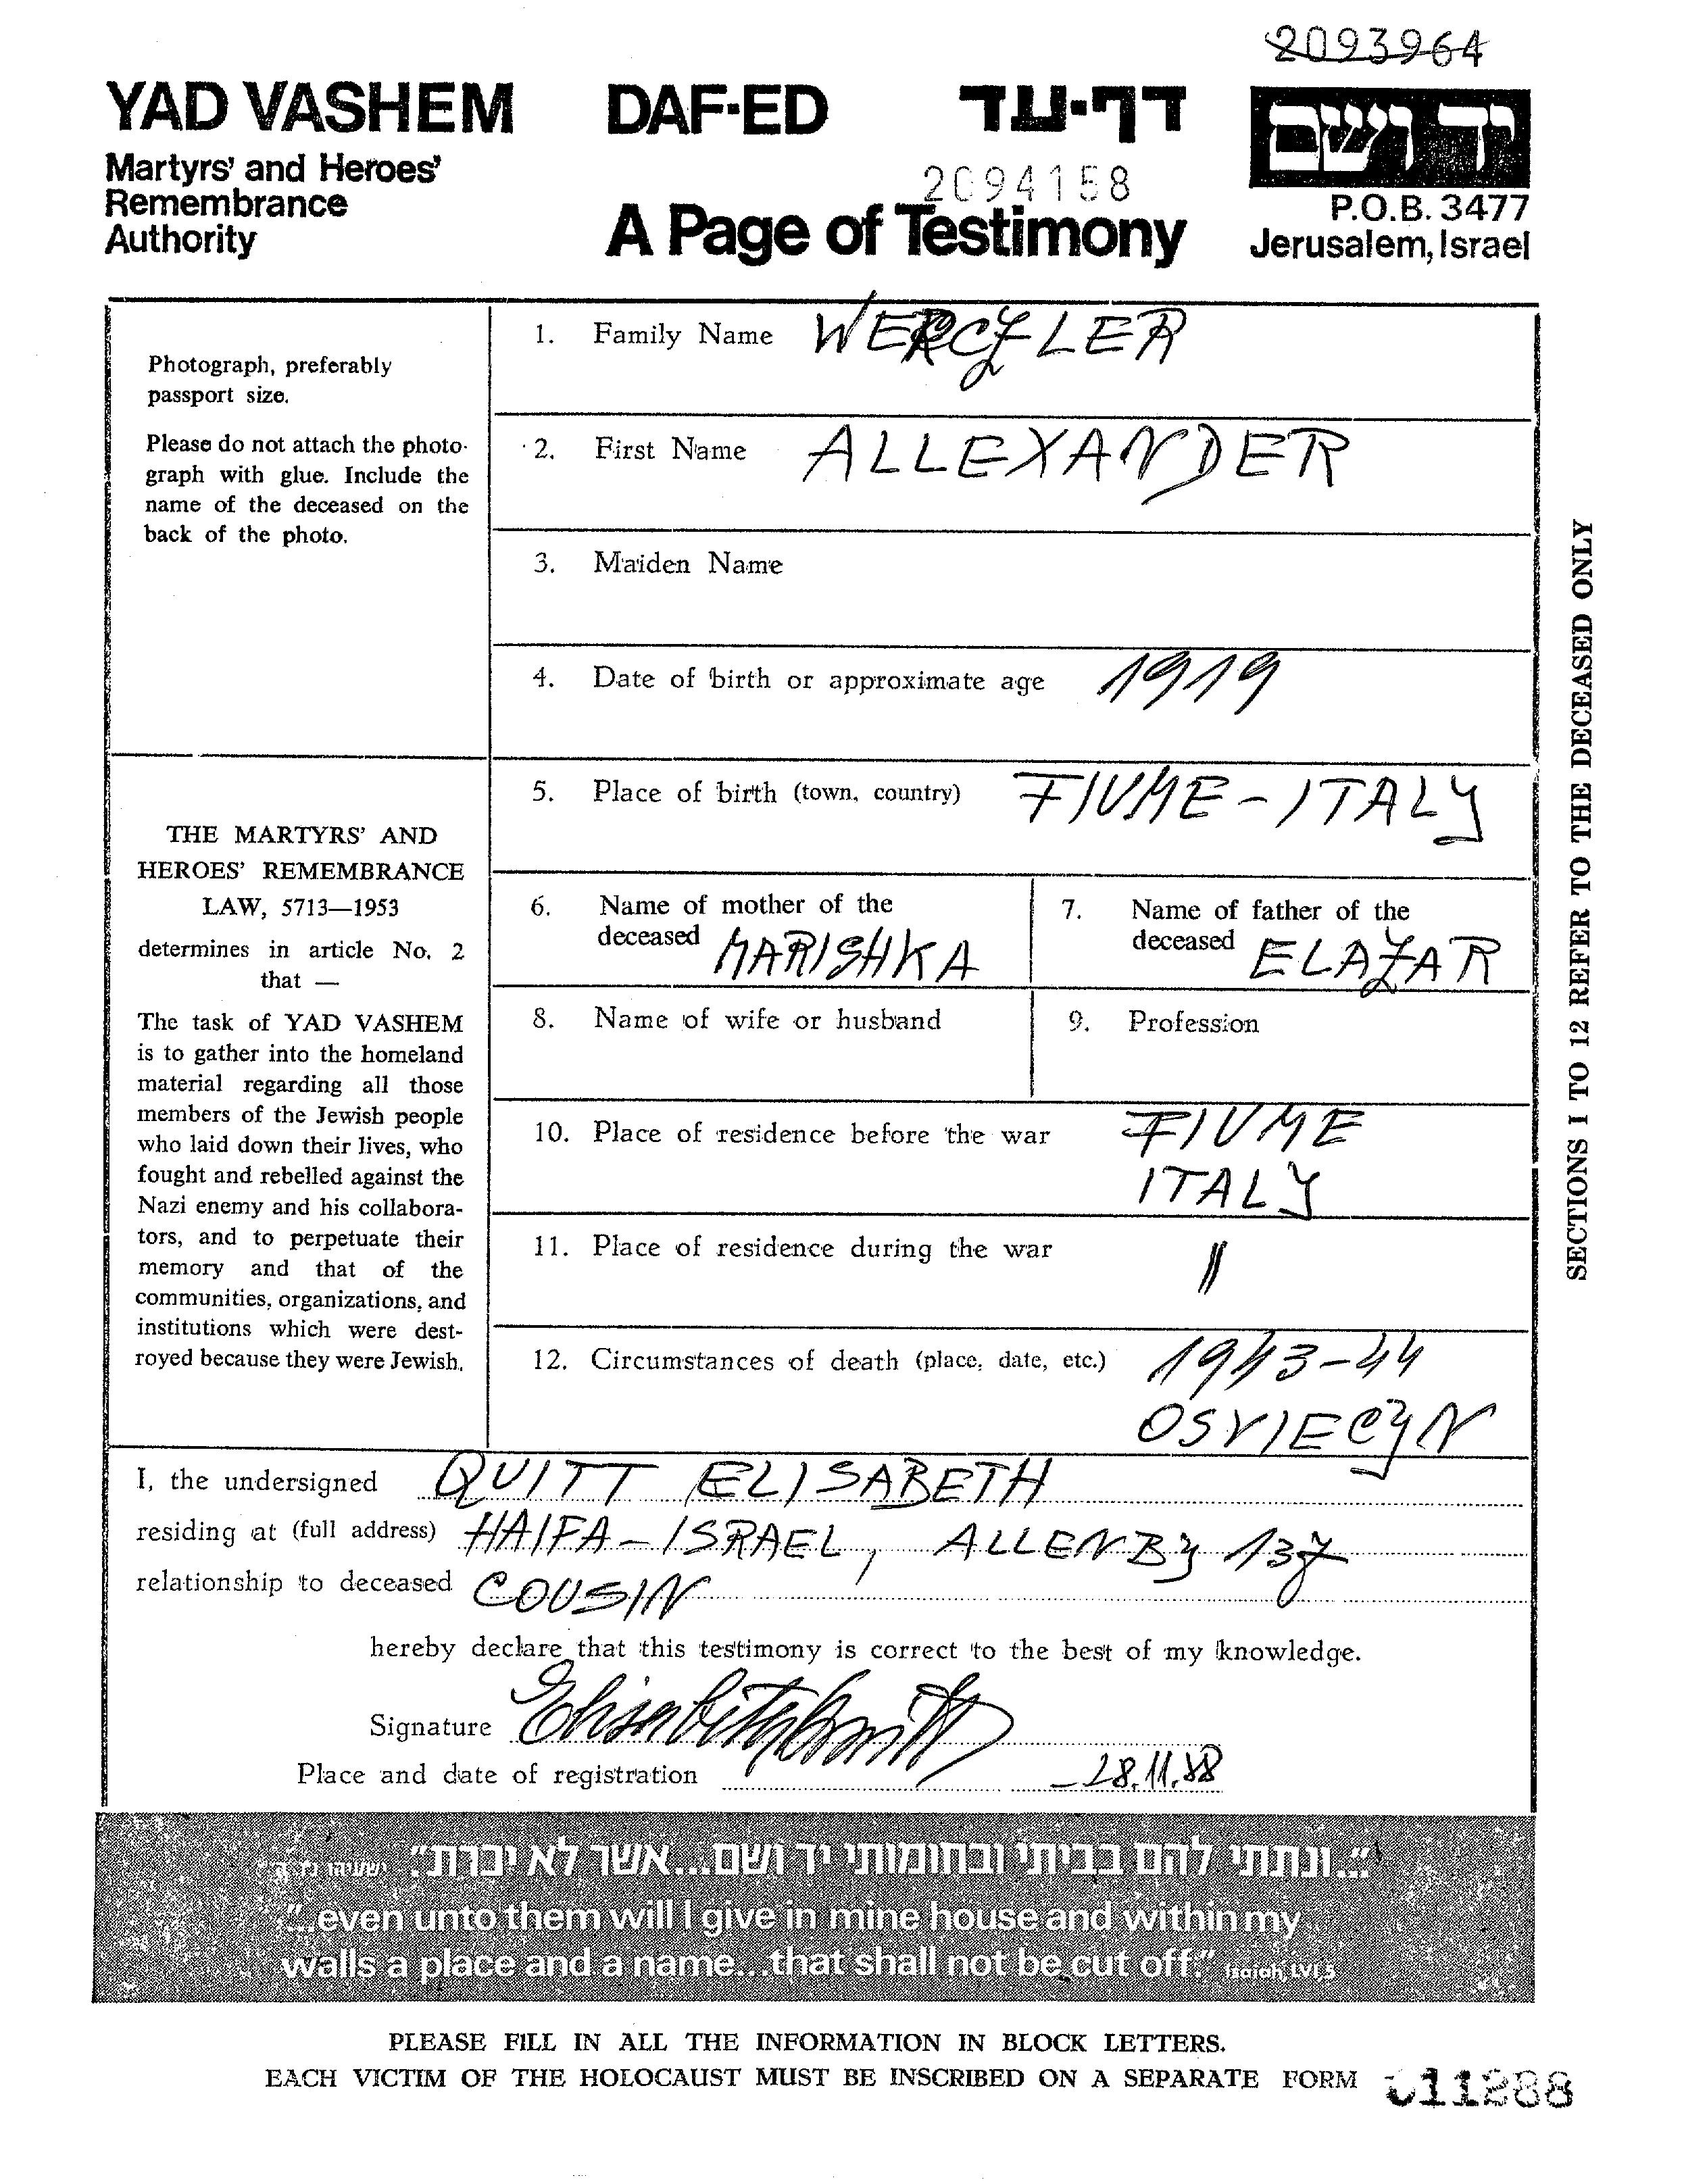 2093964
YAD VASHEM DAF-ED דף-עד יד ושם
Martyrs' and Heroes'
Remembrance
Authority
2094158
A Page of Testimony
P.O.B. 3477
Jerusalem, Israel
Photograph, preferably
passport size.
Please do not attach the photo-
graph with glue. Include the
name of the deceased on the
back of the photo.
THE MARTYRS' AND
HEROES' REMEMBRANCE
LAW, 5713—1953
determines in article No. 2
that —
The task of YAD VASHEM
is to gather into the homeland
material regarding all those
members of the Jewish people
who laid down their lives, who
fought and rebelled against the
Nazi enemy and his collabora-
tors, and to perpetuate their
memory and that of the
communities, organizations, and
institutions which were dest-
royed because they were Jewish.
1. Family Name WERCZLER
2. First Name ALLEXANDER
3. Maiden Name
4. Date of birth or approximate age 1919
5. Place of birth (town, country) FIUME - ITALY
6. Name of mother of the
deceased MARISHKA
7. Name of father of the
deceased ELAZAR
8. Name of wife or husband
9. Profession
10. Place of residence before the war FIUME
ITALY
11. Place of residence during the war "
12. Circumstances of death (place, date, etc.) 1943-44
OSVIECYN
SECTIONS 1 TO 12 REFER TO THE DECEASED ONLY
I, the undersigned QUITT ELISABETH
residing at (full address) HAIFA - ISRAEL, ALLENBY 137
relationship to deceased COUSIN
hereby declare that this testimony is correct to the best of my knowledge.
Signature
Place and date of registration 28.11.88
"...ונתתי להם בביתי ובחומותי יד ושם...אשר לא יכרת" ישעיהו נו ה
"...even unto them will I give in mine house and within my
walls a place and a name...that shall not be cut off." Isaiah, LVI,5
PLEASE FILL IN ALL THE INFORMATION IN BLOCK LETTERS.
EACH VICTIM OF THE HOLOCAUST MUST BE INSCRIBED ON A SEPARATE FORM 011288